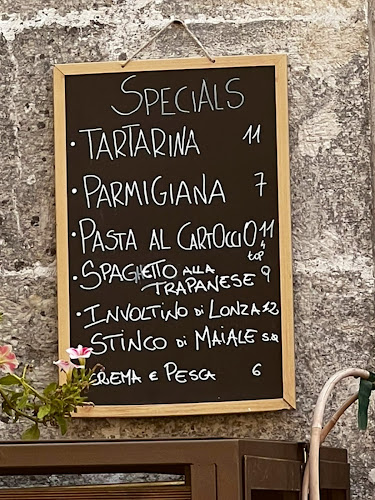 SPECIALS
• TARTARINA 11
• PARMIGIANA 7
• PASTA AL CARTOCCIO 11
top
• SPAGHETTO ALLA
TRAPANESE 9
• INVOLTINO DI LONZA 12
STINCO DI MAIALE S.Q
CREMA E PESCA 6